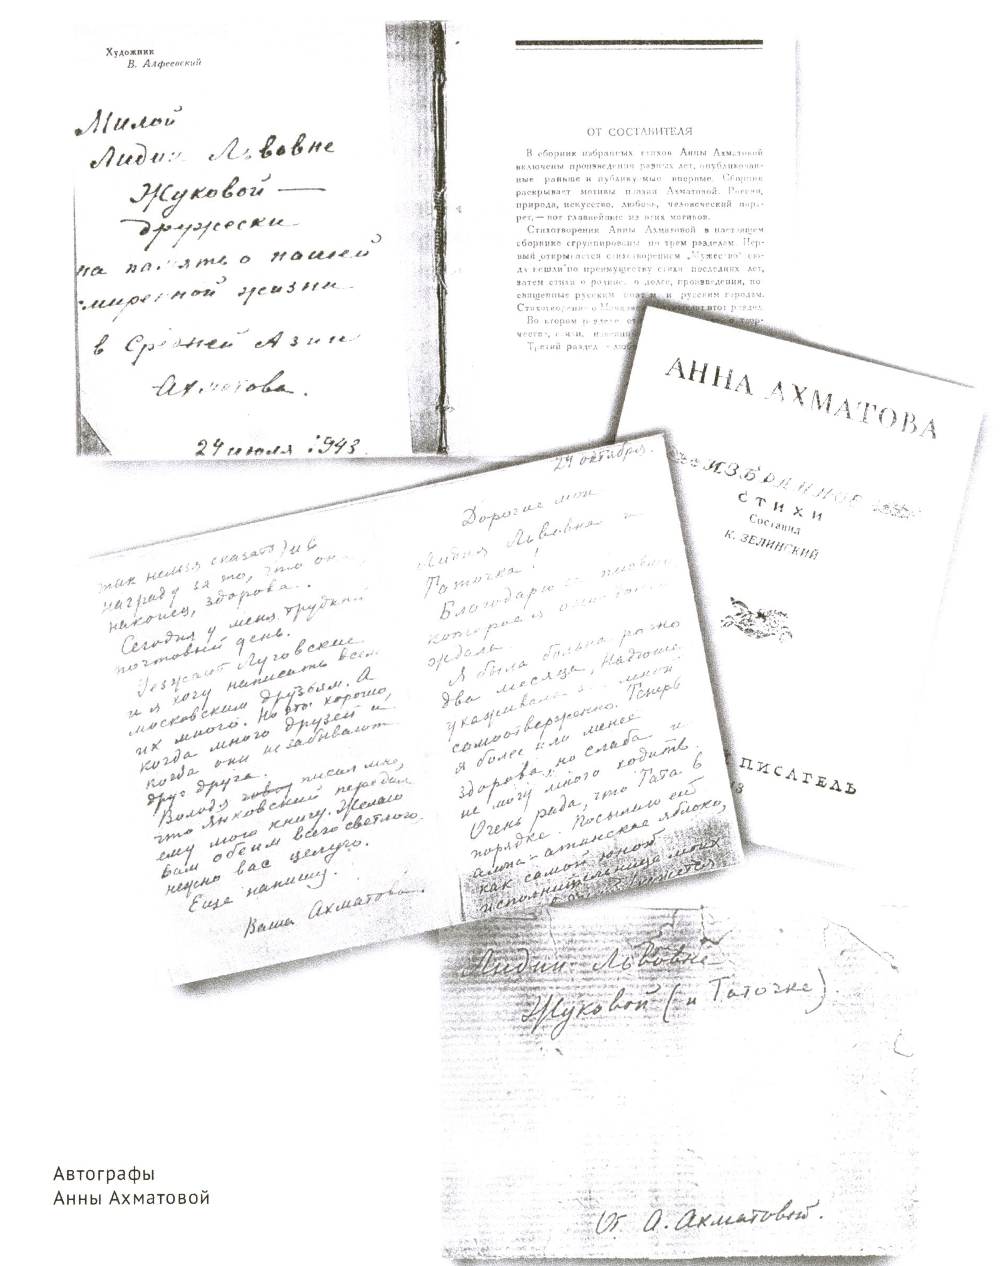 Художник
В. Алфеевский
Милой
Лидии Львовне
Жуковой —
дружески
на память о нашей
смиренной жизни
в Средней Азии
Ахматова.
24 июля 1943.
ОТ СОСТАВИТЕЛЯ
В сборник избранных стихов Анны Ахматовой
включены произведения разных лет, опубликован-
ные раньше и публикуемые впервые. Сборник
раскрывает мотивы поэзии Ахматовой. Россия,
природа, искусство, любовь, человеческий порт-
рет,— вот главнейшие из этих мотивов.
Стихотворения Анны Ахматовой в настоящем
сборнике сгруппированы по трем разделам. Пер-
вый открывается стихотворением „Мужество" сю-
да вошли по преимуществу стихи последних лет,
затем стихи о родине, о долге, произведения, по-
священные русским поэтам и русским городам.
Стихотворение о Маяковском этот раздел
Во втором разделе
Третий раздел —
АННА АХМАТОВА
ИЗБРАННОЕ
СТИХИ
Составил
К. ЗЕЛИНСКИЙ
ПИСАТЕЛЬ
24 октября.
Дорогие мои
Лидия Львовна и
Таточка!
Благодарю за письмо
которого
ждала.
Я была больна ровно
два месяца, Надюша
ухаживала за мной
самоотверженно. Теперь
я более или менее
здорова, но слаба и
не могу много ходить.
Очень рада, что Тата в
порядке. Посылаю ей
алма-атинское яблоко,
как самой юной
исполнительнице моих
так нельзя сказать) и в
награду за то, что она,
наконец, здорова.
Сегодня у меня трудный
почтовый день.
Уезжают Луговские
и я хочу написать всем
московским друзьям. А
их много. Но это хорошо,
когда много друзей и
когда они не забывают
друг друга.
Володя писал мне,
что Янковский передал
ему мою книгу. Желаю
вам обеим всего светлого.
нежно вас целую.
Еще напишу.
Ваша Ахматова.
Лидии Львовне
Жуковой (и Таточке).
От А. Ахматовой.
Автографы
Анны Ахматовой